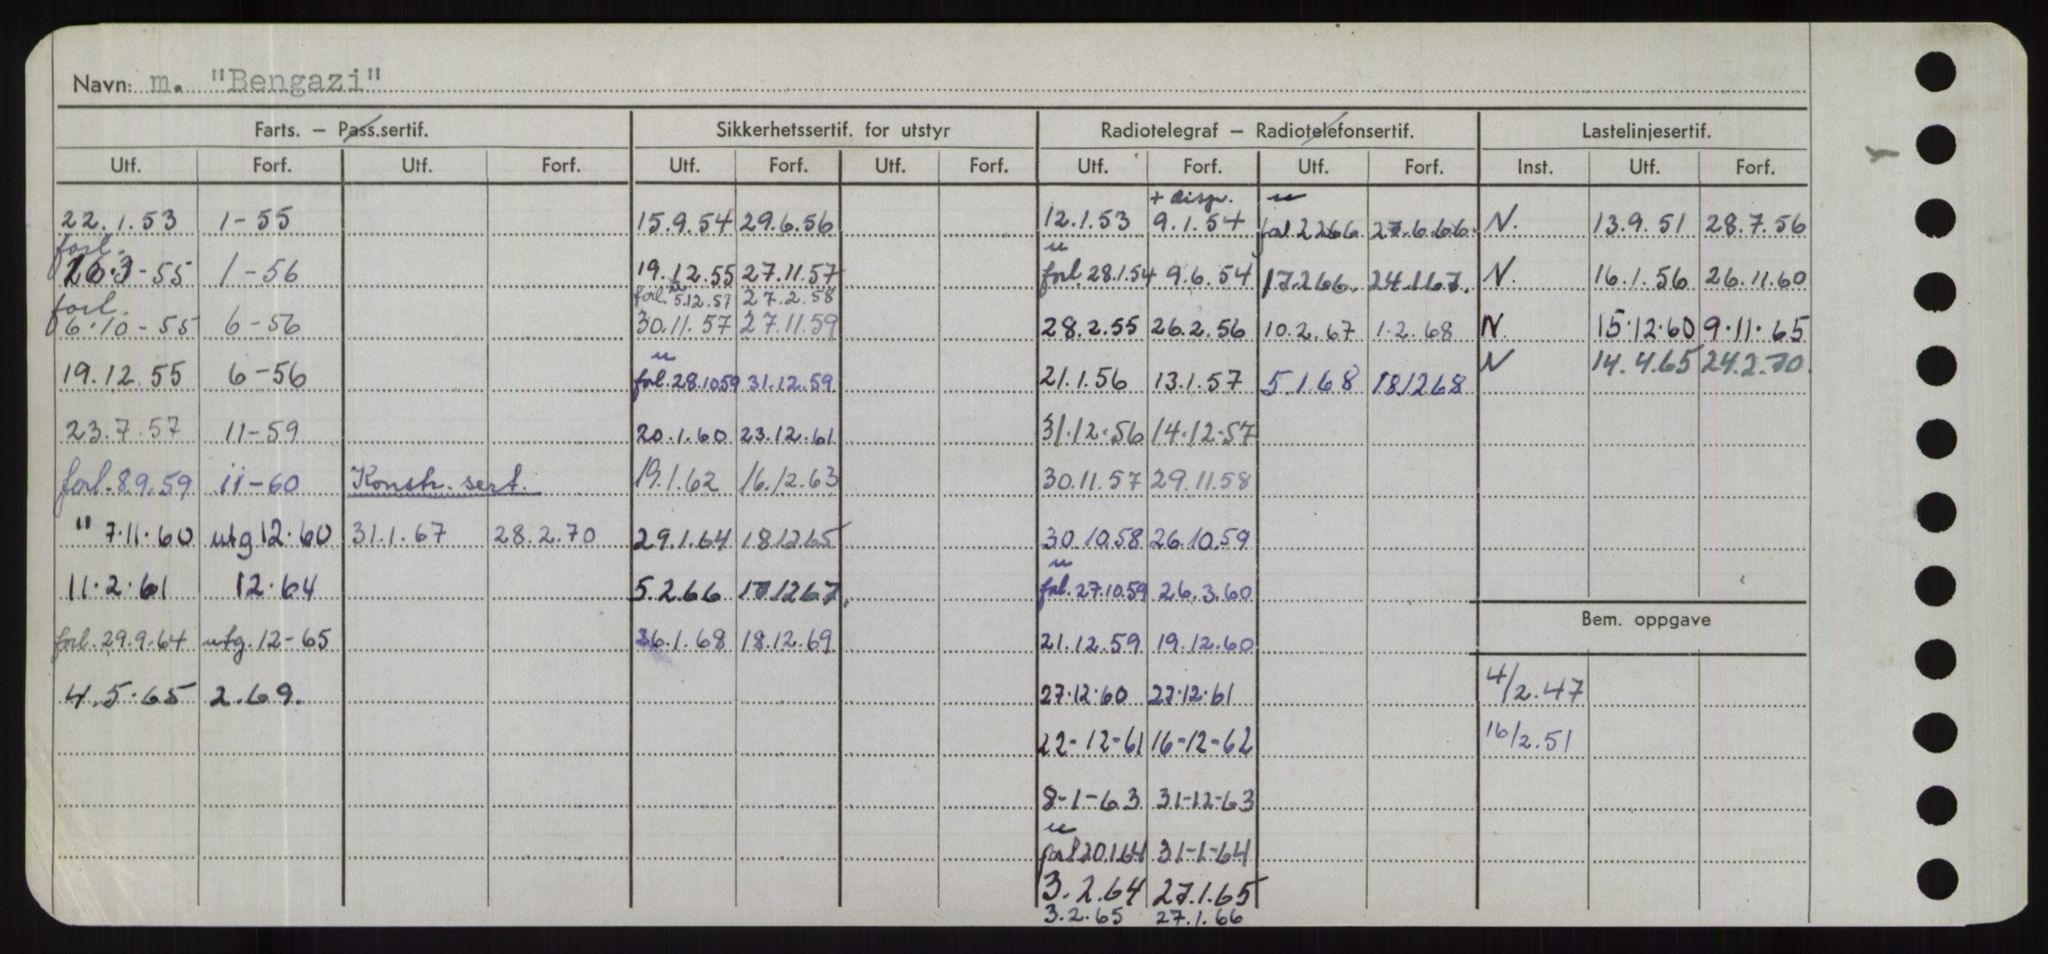 Navn: m. "Bengazi"
Farts. – Pass.sertif. Sikkerhetssertif. for utstyr Radiotelegraf – Radiotelefonsertif. Lastelinjesertif.
Utf. Forf. Utf. Forf. Utf. Forf. Utf. Forf. Utf. Forf. Utf. Forf. Inst. Utf. Forf.
+ disp. u
22.1.53 1-55 15.9.54 29.6.56 12.1.53 9.1.54 forl 2266 27.6.66. N. 13.9.51 28.7.56
forl. u
26.3-55 1-56 19.12.55 27.11.57 forl. 28.1.54 9.6.54 17.2.66. 24.1.67. N. 16.1.56 26.11.60
forl. forl. u 5.12.57 27.2.58
6.10-55 6-56 30.11.57 27.11.59 28.2.55 26.2.56 10.2.67 1.2.68 N. 15.12.60 9.11.65
u
19.12.55 6-56 forl. 28.10.59 31.12.59 21.1.56 13.1.57 5.1.68 18.12.68 N 14.4.65 24.2.70.
23.7.57 11-59 20.1.60 23.12.61 31.12.56 14.12.57
forl. 8.9.59 11-60 Konstr. sert. 19.1.62 16.12.63 30.11.57 29.11.58
" 7.11.60 utg 12.60 31.1.67 28.2.70 29.1.64 18.12.65 30.10.58 26.10.59
u
11.2.61 12.64 5.2.66 18.12.67. forl. 27.10.59 26.3.60
Bem. oppgave
forl. 29.9.64 utg. 12-65 26.1.68 18.12.69 21.12.59 19.12.60
4.5.65 2.69. 27.12.60 27.12.61 4/2.47
22-12-61 16-12-62 16/2.51
8-1-63 31-12-63
u
forl 20.1.64 31-1-64
3.2.64 27.1.65
3.2.65 27.1.66